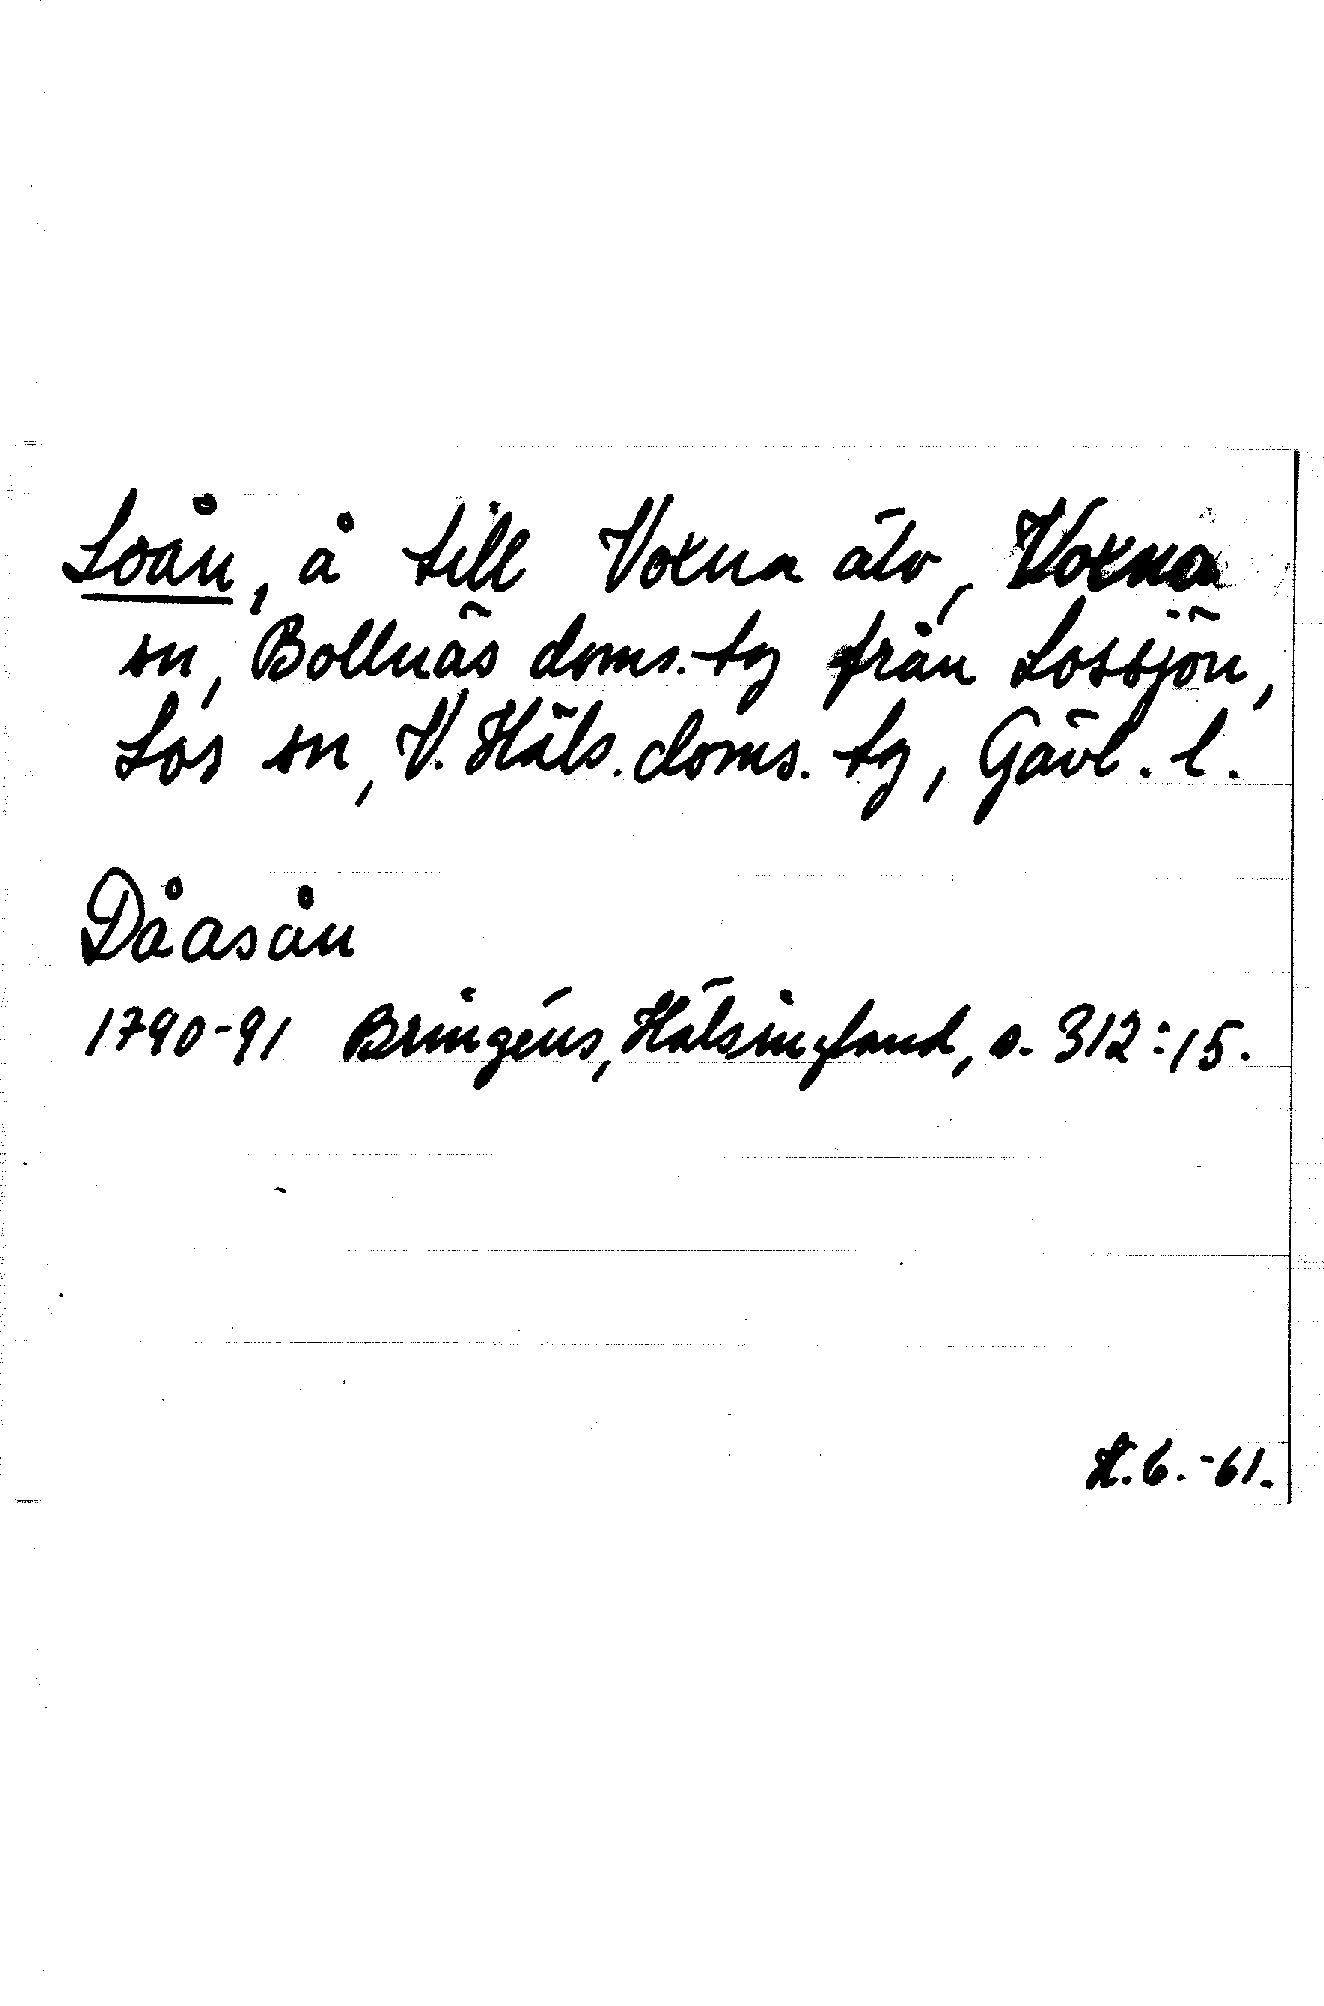 Loån, å till Voxna älv, Voxna
sn, Bollnäs doms. tg från Lossjön,
Los sn, V. Häls. doms. tg, Gävl. l.
Dåasån
1790-91 Bringéus, Hälsingland, s. 312:15.
H.G.-61.